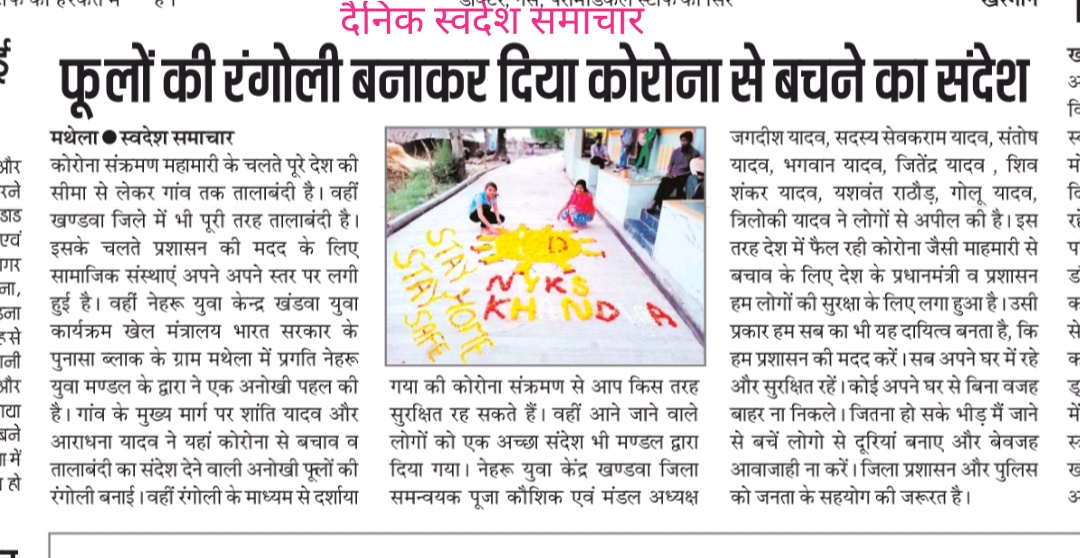 दैनिक स्वदेश समाचार
फूलों की रंगोली बनाकर दिया कोरोना से बचने का संदेश
मथेला ● स्वदेश समाचार
कोरोना संक्रमण महामारी के चलते पूरे देश की
सीमा से लेकर गांव तक तालाबंदी है। वहीं
खण्डवा जिले में भी पूरी तरह तालाबंदी है।
इसके चलते प्रशासन की मदद के लिए
सामाजिक संस्थाएं अपने अपने स्तर पर लगी
हुई है। वहीं नेहरू युवा केन्द्र खंडवा युवा
कार्यक्रम खेल मंत्रालय भारत सरकार के
पुनासा ब्लाक के ग्राम मथेला में प्रगति नेहरू
युवा मण्डल के द्वारा ने एक अनोखी पहल की
है। गांव के मुख्य मार्ग पर शांति यादव और
आराधना यादव ने यहां कोरोना से बचाव व
तालाबंदी का संदेश देने वाली अनोखी फूलों की
रंगोली बनाई। वहीं रंगोली के माध्यम से दर्शाया
STAY HOME
STAY SAFE
NYKS
KHANDWA
गया की कोरोना संक्रमण से आप किस तरह
सुरक्षित रह सकते हैं। वहीं आने जाने वाले
लोगों को एक अच्छा संदेश भी मण्डल द्वारा
दिया गया। नेहरू युवा केंद्र खण्डवा जिला
समन्वयक पूजा कौशिक एवं मंडल अध्यक्ष
जगदीश यादव, सदस्य सेवकराम यादव, संतोष
यादव, भगवान यादव, जितेंद्र यादव , शिव
शंकर यादव, यशवंत राठौड़, गोलू यादव,
त्रिलोकी यादव ने लोगों से अपील की है। इस
तरह देश में फैल रही कोरोना जैसी माहमारी से
बचाव के लिए देश के प्रधानमंत्री व प्रशासन
हम लोगों की सुरक्षा के लिए लगा हुआ है। उसी
प्रकार हम सब का भी यह दायित्व बनता है, कि
हम प्रशासन की मदद करें। सब अपने घर में रहे
और सुरक्षित रहें। कोई अपने घर से बिना वजह
बाहर ना निकले। जितना हो सके भीड़ मैं जाने
से बचें लोगो से दूरियां बनाए और बेवजह
आवाजाही ना करें। जिला प्रशासन और पुलिस
को जनता के सहयोग की जरूरत है।